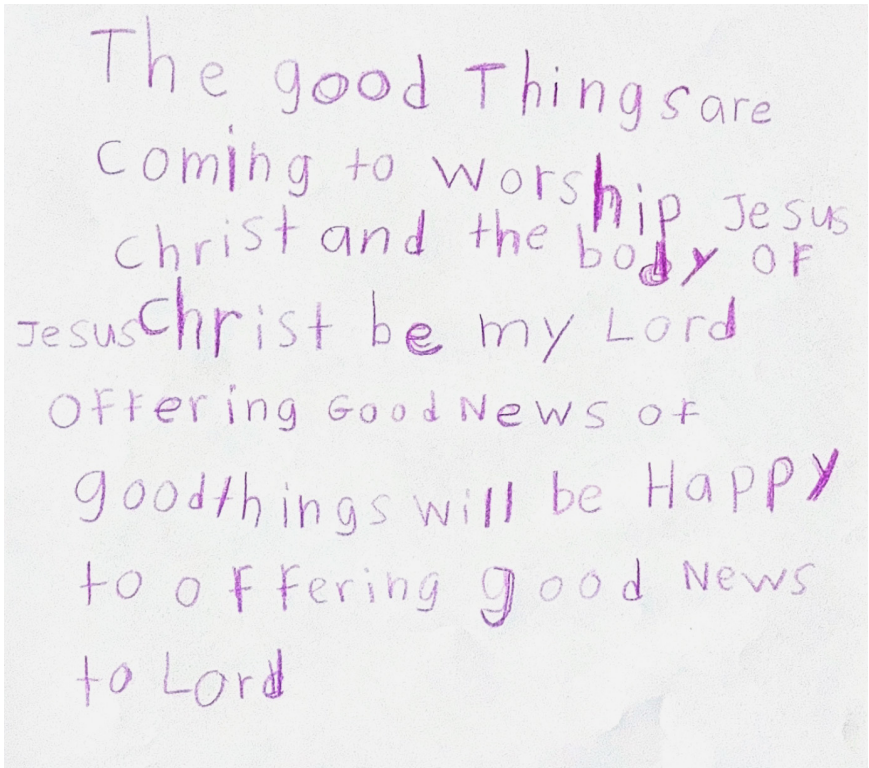 The good Things are
Coming to worship Jesus
Christ and the body of
Jesus Christ be my Lord
Offering Good News of
good things will be Happy
to offering good News
to Lord